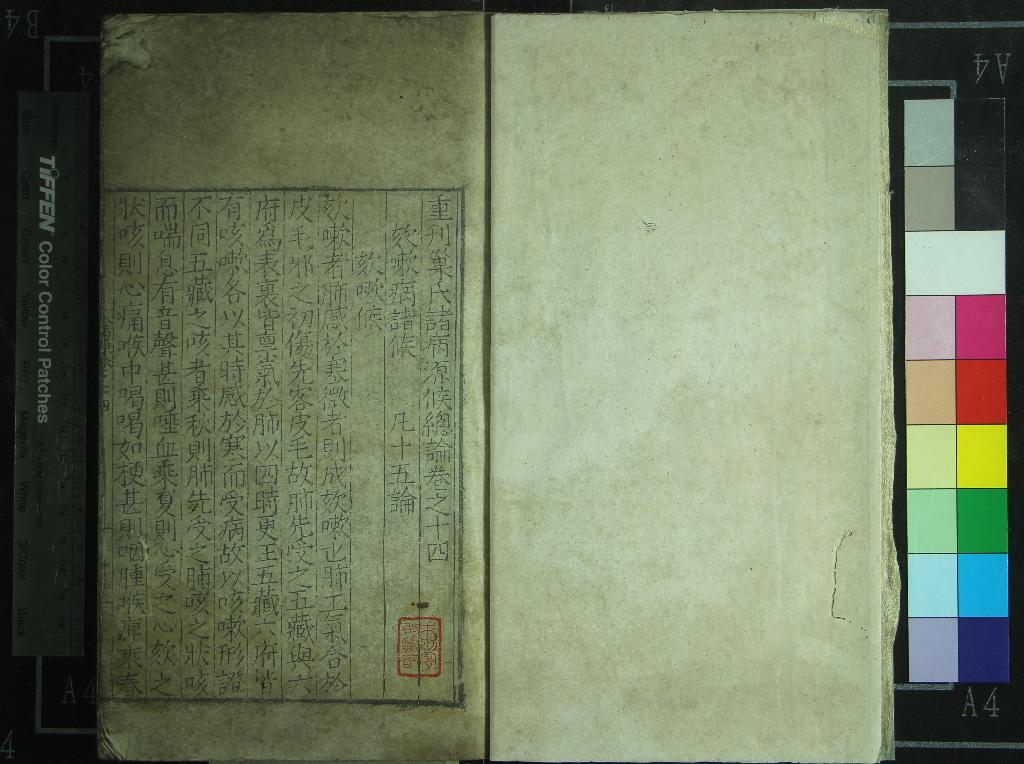 重刊巢氏諸病源候總論卷之十四
欬嗽病諸候 凡十五論
欬嗽候
欬嗽者肺感於寒微者則成欬嗽也肺主氣合於
皮毛邪之初傷先客皮毛故肺先受之五藏與六
府為表裏皆禀氣於肺以四時更王五藏六府皆
有咳嗽各以其時感於寒而受病故以咳嗽形證
不同五藏之咳者乘秋則肺先受之肺咳之狀咳
而喘息有音聲甚則唾血乘夏則心受之心欬之
狀咳則心痛喉中喝喝如梗甚則咽腫喉痹乘春
TIFFEN Color Control Patches
Blue Cyan Green Yellow Red Magenta White 3/Color Black
A4
A4
A4
B4